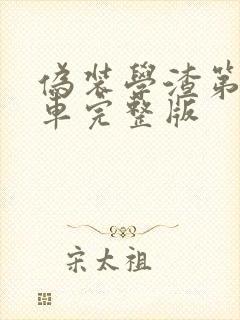 偽裝學渣第
車完整版
宋太祖